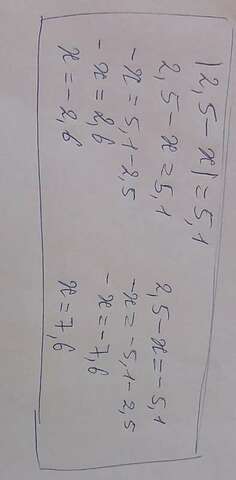 |2,5-x|=5,1
2,5-x=5,1
-x=5,1-2,5
-x=2,6
x=-2,6
2,5-x=-5,1
-x=-5,1-2,5
-x=-7,6
x=7,6